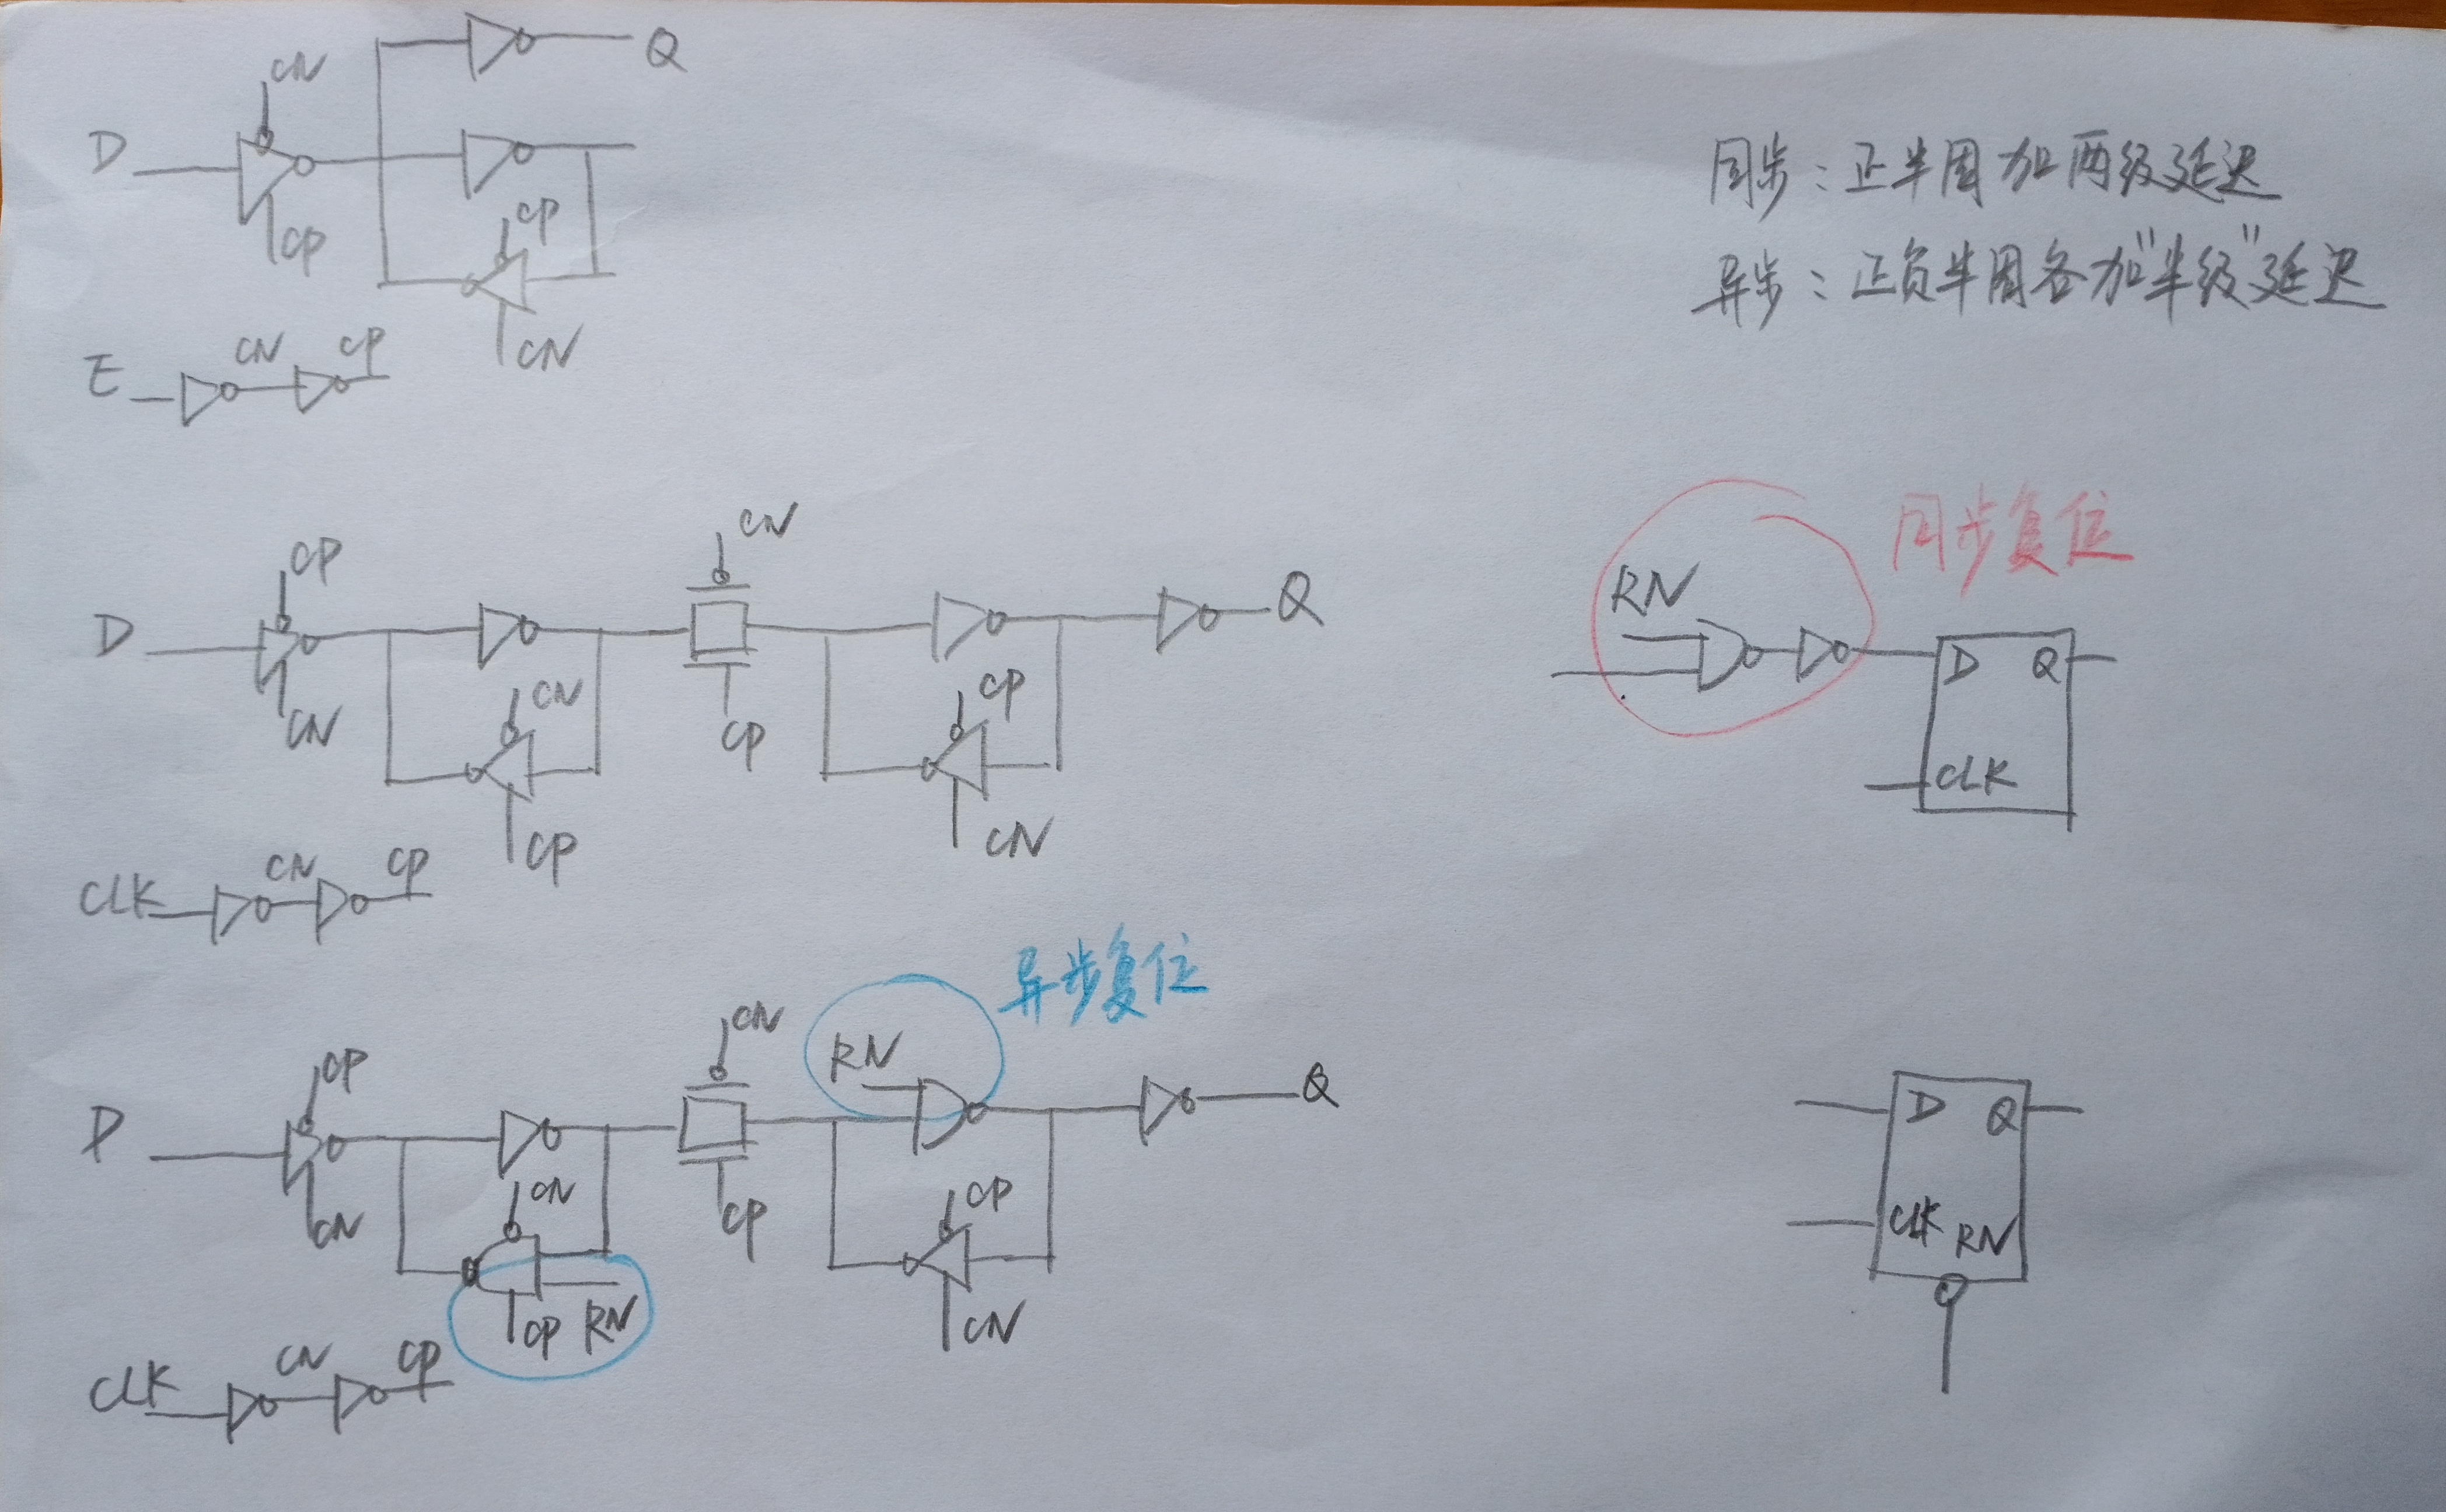 CN
Q
D
CP
CP
CN
E
CN
CP
同步：正半周加两级延迟
异步：正负半周各加"半级"延迟
CP
CN
D
Q
CN
CN
CP
CP
CP
CN
CLK
CN
CP
同步复位
RN
D
Q
CLK
异步复位
CP
CN
RN
D
Q
CN
CN
CP
CP
CP
RN
CN
CLK
CN
CP
D
Q
CLK
RN